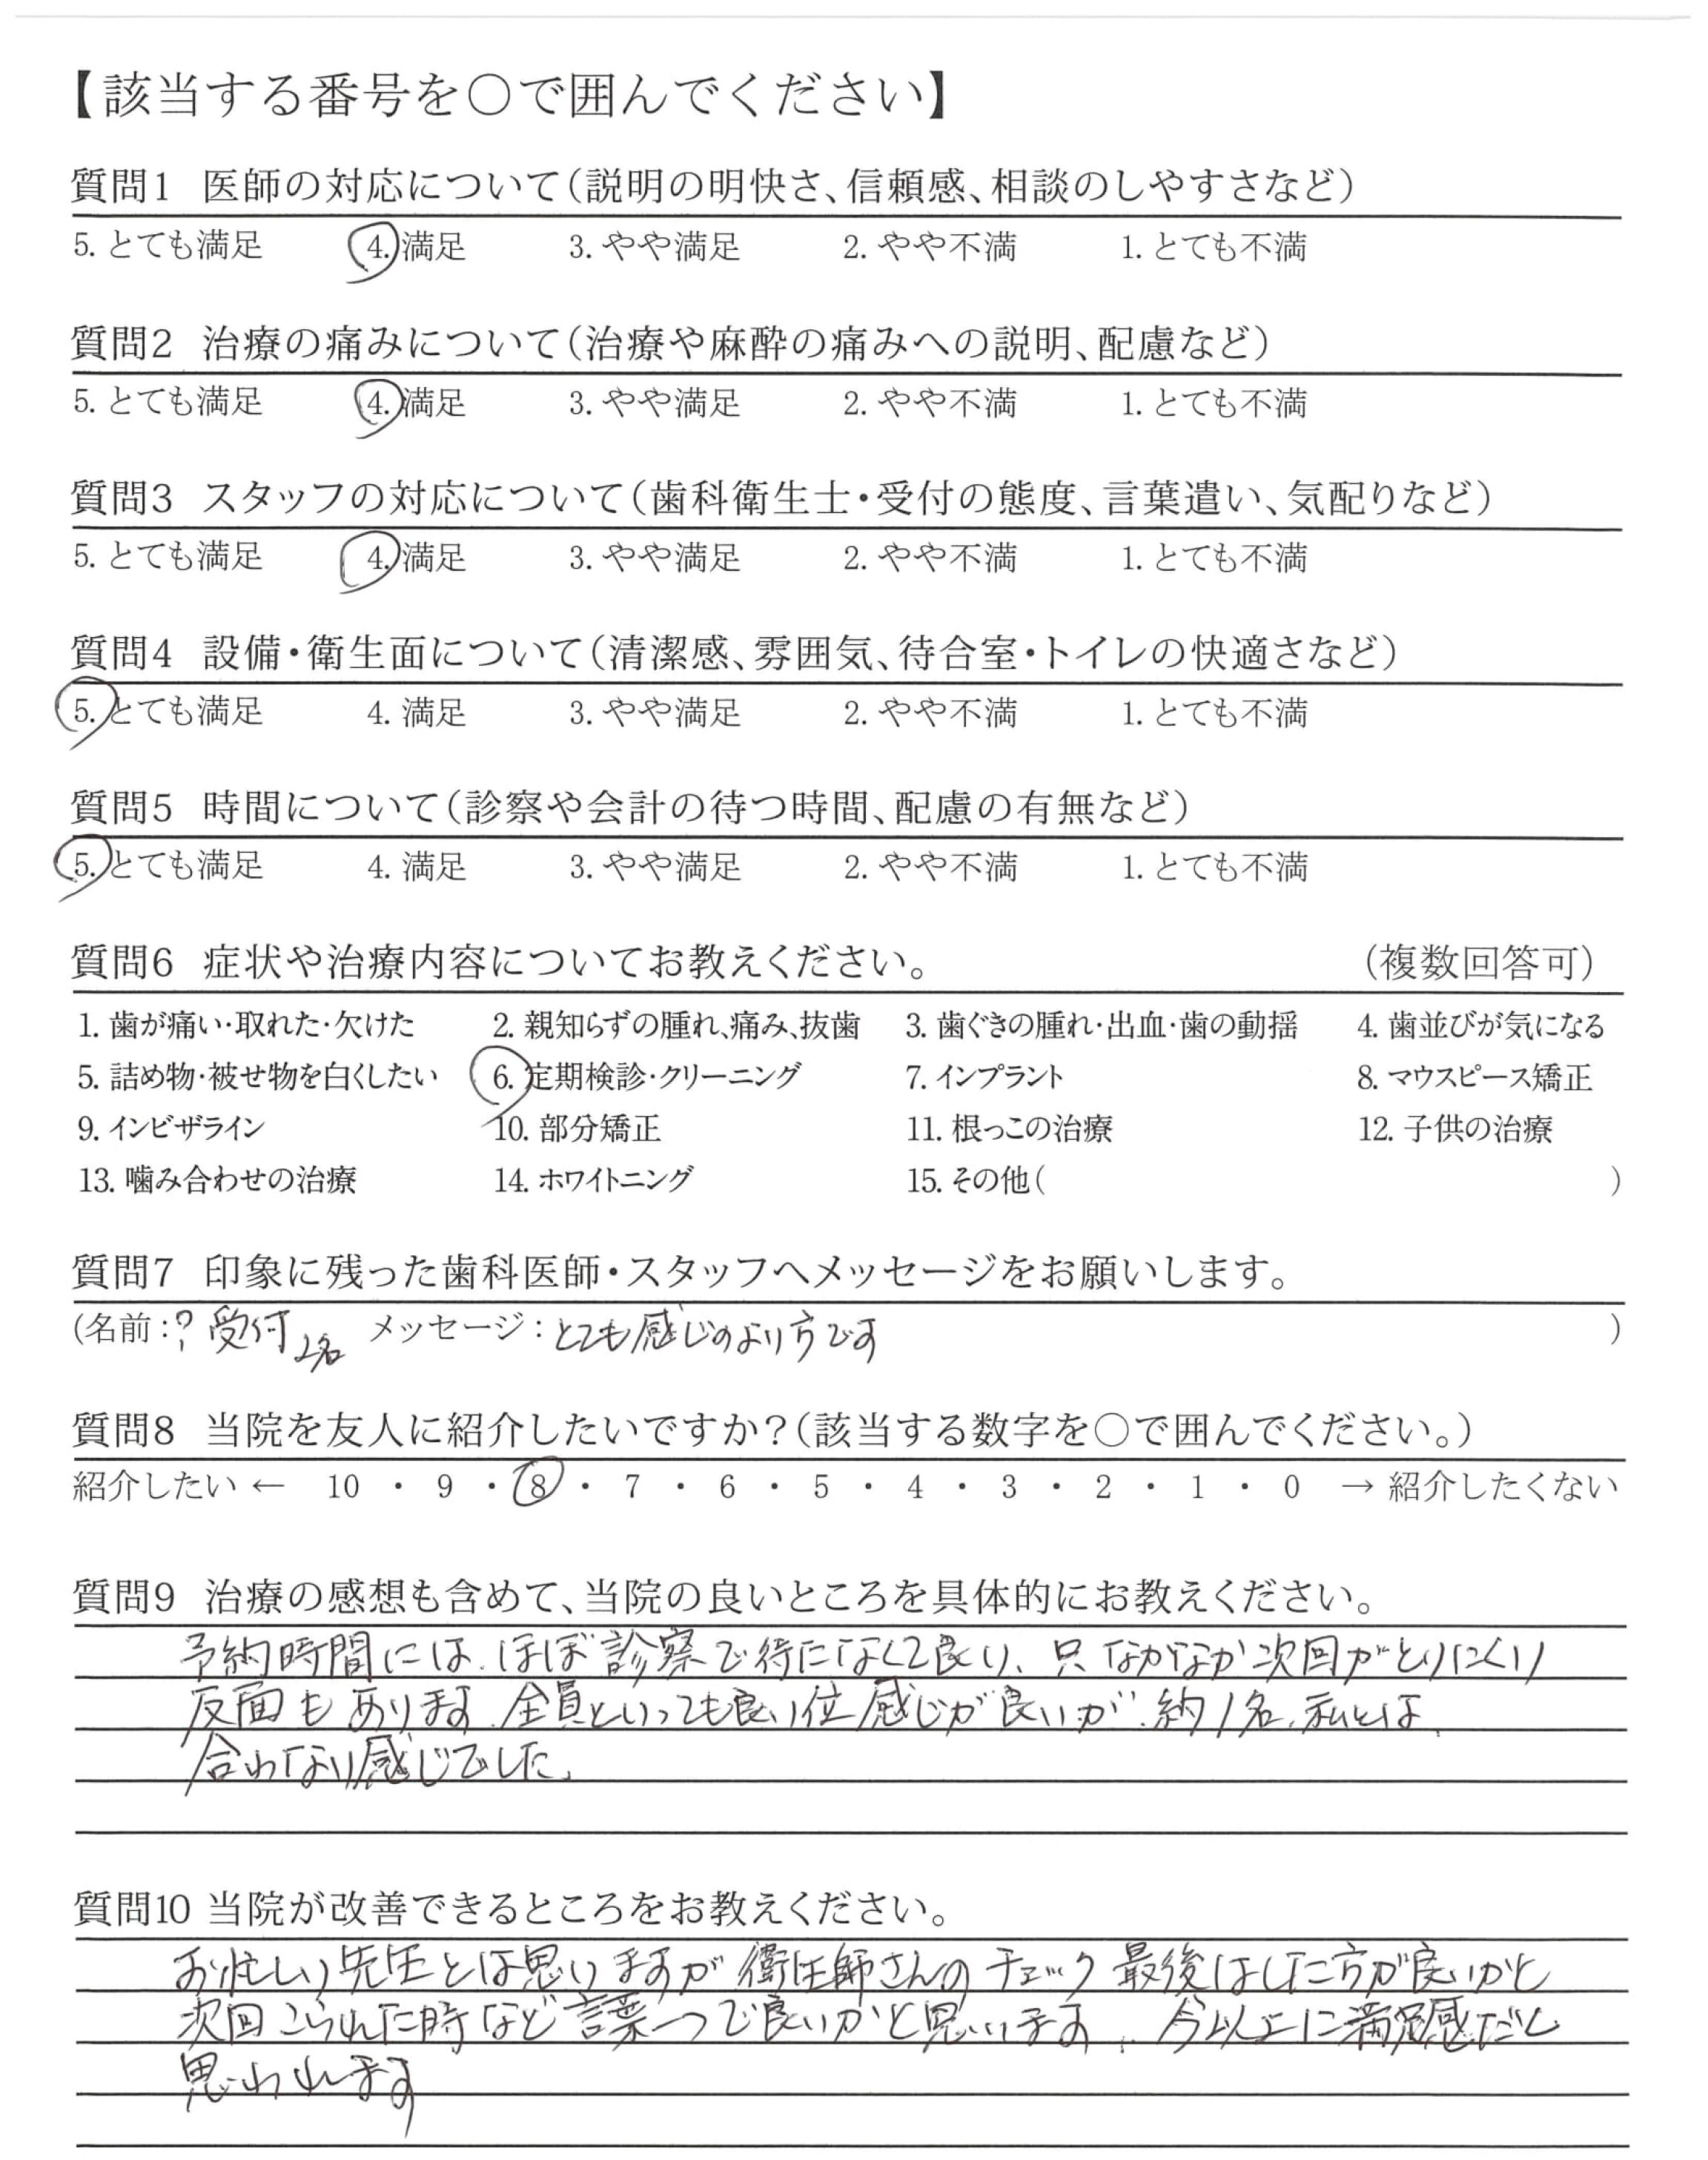 【該当する番号を○で囲んでください】
質問1 医師の対応について（説明の明快さ、信頼感、相談のしやすさなど）
5. とても満足 4. 満足 3. やや満足 2. やや不満 1. とても不満
質問2 治療の痛みについて（治療や麻酔の痛みへの説明、配慮など）
5. とても満足 4. 満足 3. やや満足 2. やや不満 1. とても不満
質問3 スタッフの対応について（歯科衛生士・受付の態度、言葉遣い、気配りなど）
5. とても満足 4. 満足 3. やや満足 2. やや不満 1. とても不満
質問4 設備・衛生面について（清潔感、雰囲気、待合室・トイレの快適さなど）
5. とても満足 4. 満足 3. やや満足 2. やや不満 1. とても不満
質問5 時間について（診察や会計の待つ時間、配慮の有無など）
5. とても満足 4. 満足 3. やや満足 2. やや不満 1. とても不満
質問6 症状や治療内容についてお教えください。 （複数回答可）
1. 歯が痛い・取れた・欠けた 2. 親知らずの腫れ、痛み、抜歯 3. 歯ぐきの腫れ・出血・歯の動揺 4. 歯並びが気になる
5. 詰め物・被せ物を白くしたい 6. 定期検診・クリーニング 7. インプラント 8. マウスピース矯正
9. インビザライン 10. 部分矯正 11. 根っこの治療 12. 子供の治療
13. 噛み合わせの治療 14. ホワイトニング 15. その他（ ）
質問7 印象に残った歯科医師・スタッフへメッセージをお願いします。
（名前：？受付 名 メッセージ：とても感じのよい方です ）
質問8 当院を友人に紹介したいですか？（該当する数字を○で囲んでください。）
紹介したい ← 10 ・ 9 ・ 8 ・ 7 ・ 6 ・ 5 ・ 4 ・ 3 ・ 2 ・ 1 ・ 0 → 紹介したくない
質問9 治療の感想も含めて、当院の良いところを具体的にお教えください。
予約時間には、ほぼ診察で待たなくて良い、只なかなか次回がとりにくい
反面もあります。全員といっても良い位感じが良いが、約1名、私とは
合わない感じでした。
質問10 当院が改善できるところをお教えください。
お忙しい先生とは思いますが衛生師さんのチェック最後はした方が良いかと
次回こられた時など言葉一つで良いかと思います。今以上に満足感だと
思われます